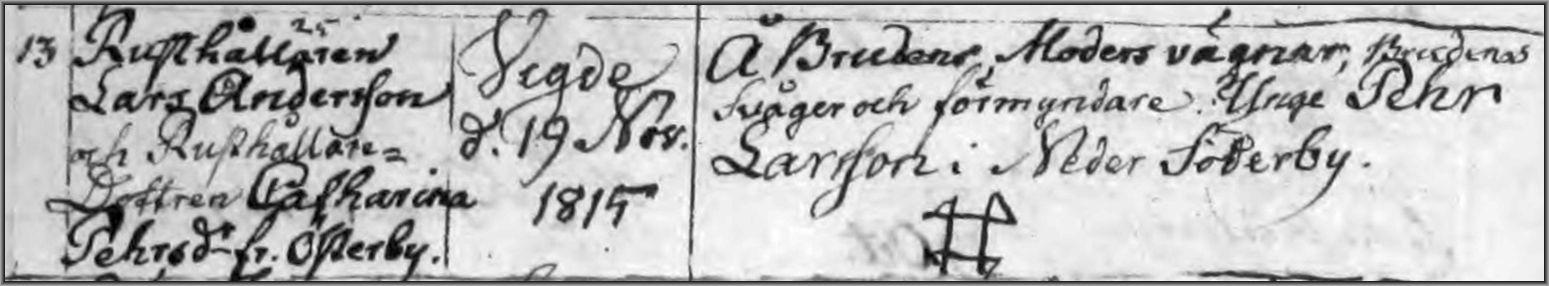 13 Rusthållaren 25
Lars Andersson
och Rusthållare=
Dottren Catharina
Pehrsdr fr. Österby.
Vigde
d. 19 Nov.
1815
Å Brudens Moders vägnar, Brudenas
Svåger och förmyndare. Unge Pehr
Larsson i Neder Söderby.